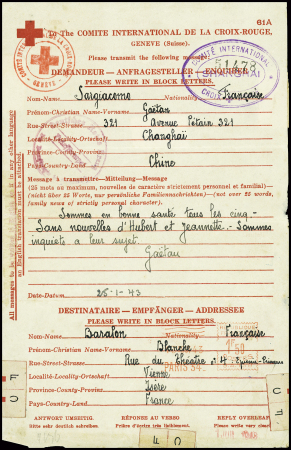 61A
To The COMITÉ INTERNATIONAL DE LA CROIX-ROUGE.
GENEVE (Suisse).
Please transmit the following message:
COMITÉ INTERNATIONAL
51478
SHANGHAI
CROIX
DEMANDEUR—ANFRAGESTELLER—ENQUIRER
PLEASE WRITE IN BLOCK LETTERS.
Nom-Name: Sargiacomo Nationality Française
Prénom-Christian Name-Vorname Gaëtan
Rue-Street-Strasse: 321 Avenue Pétain 321
Localité-Locality-Ortschaft: Changhaï
Province-County-Provinz:
Pays-Country-Land: Chine
Message à transmettre—Mitteilung—Message
(25 mots au maximum, nouvelles de caractère strictement personnel et familial)—
(nicht über 25 Worte, nur persönliche Familiennachrichten)—(not over 25 words,
family news of strictly personal character).
Sommes en bonne santé tous les cinq.-
Sans nouvelles d'Hubert et Jeannette.- Sommes
inquiets à leur sujet.
Gaëtan
Date-Datum 25-1-43
All messages to be in English. If in any other language
an English translation must be attached.
DESTINATAIRE — EMPFÄNGER — ADDRESSEE
PLEASE WRITE IN BLOCK LETTERS.
Nom-Name: Baralon Nationality Française
Prénom-Christian Name-Vorname Blanche
Rue-Street-Strasse: Rue du Théâtre n° 4
Localité-Locality-Ortschaft: Vienne
Province-County-Provinz: Isère
Pays-Country-Land: France
ANTWORT UMSEITIG. RÉPONSE AU VERSO REPLY OVERLEAF.
Bitte sehr deutlich schreiben. Prière d'écrire très lisiblement.